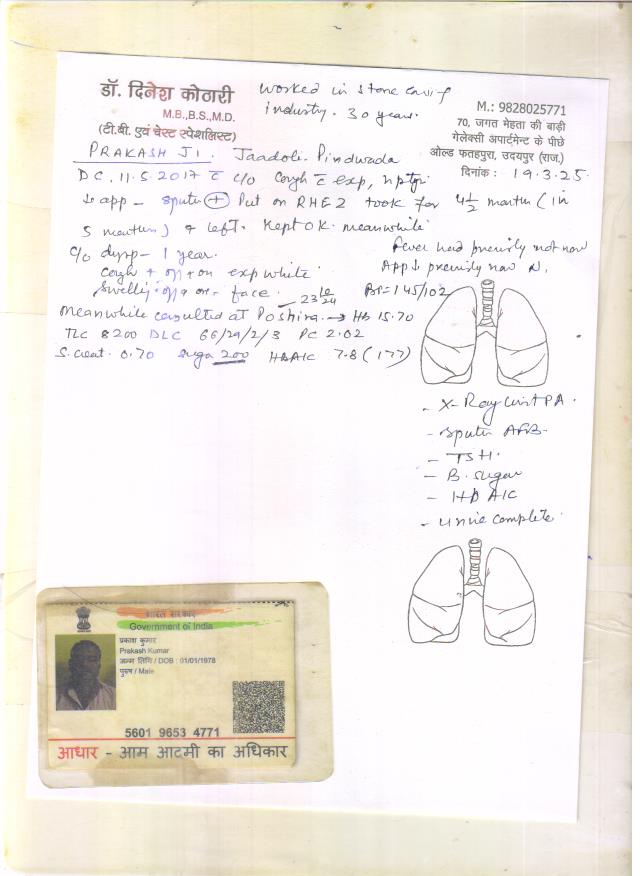 डॉ. दिनेश कोठारी
M.B.,B.S.,M.D.
(टी.बी. एवं चेस्ट स्पेशलिस्ट)
worked in stone
industry. 30 years.
M.: 9828025771
70, जगत मेहता की बाड़ी
गेलेक्सी अपार्टमेन्ट के पीछे
ओल्ड फतहपुरा, उदयपुर (राज.)
दिनांक : 19.3.25
PRAKASH JI. Jaadoli. Pindwada
DC. 11.5.2017 c c/o Cough c exp,
↓ app - sputum + Put on RHEZ took for 4½ months (in
5 months) & left. Kept OK. meanwhile
c/o dysp - 1 year.
Cough + off + on exp white
Swelling off & on - face.
Fever had previously not now
App ↓ previously now N.
BP = 145/102
23 10/24
meanwhile consulted at Poshina. → Hb 15.70
TLC 8200 DLC 66/29/2/3 PC 2.02
S. creat. 0.70 Sugar 200 HBA1C 7.8 (177)
- X-Ray Chest PA.
- Sputum AFB
- TSH.
- B. sugar
- HBA1C
- Urine complete.
भारत सरकार
Government of India
प्रकाश कुमार
Prakash Kumar
जन्म तिथि / DOB : 01/01/1978
पुरुष / Male
5601 9653 4771
आधार - आम आदमी का अधिकार